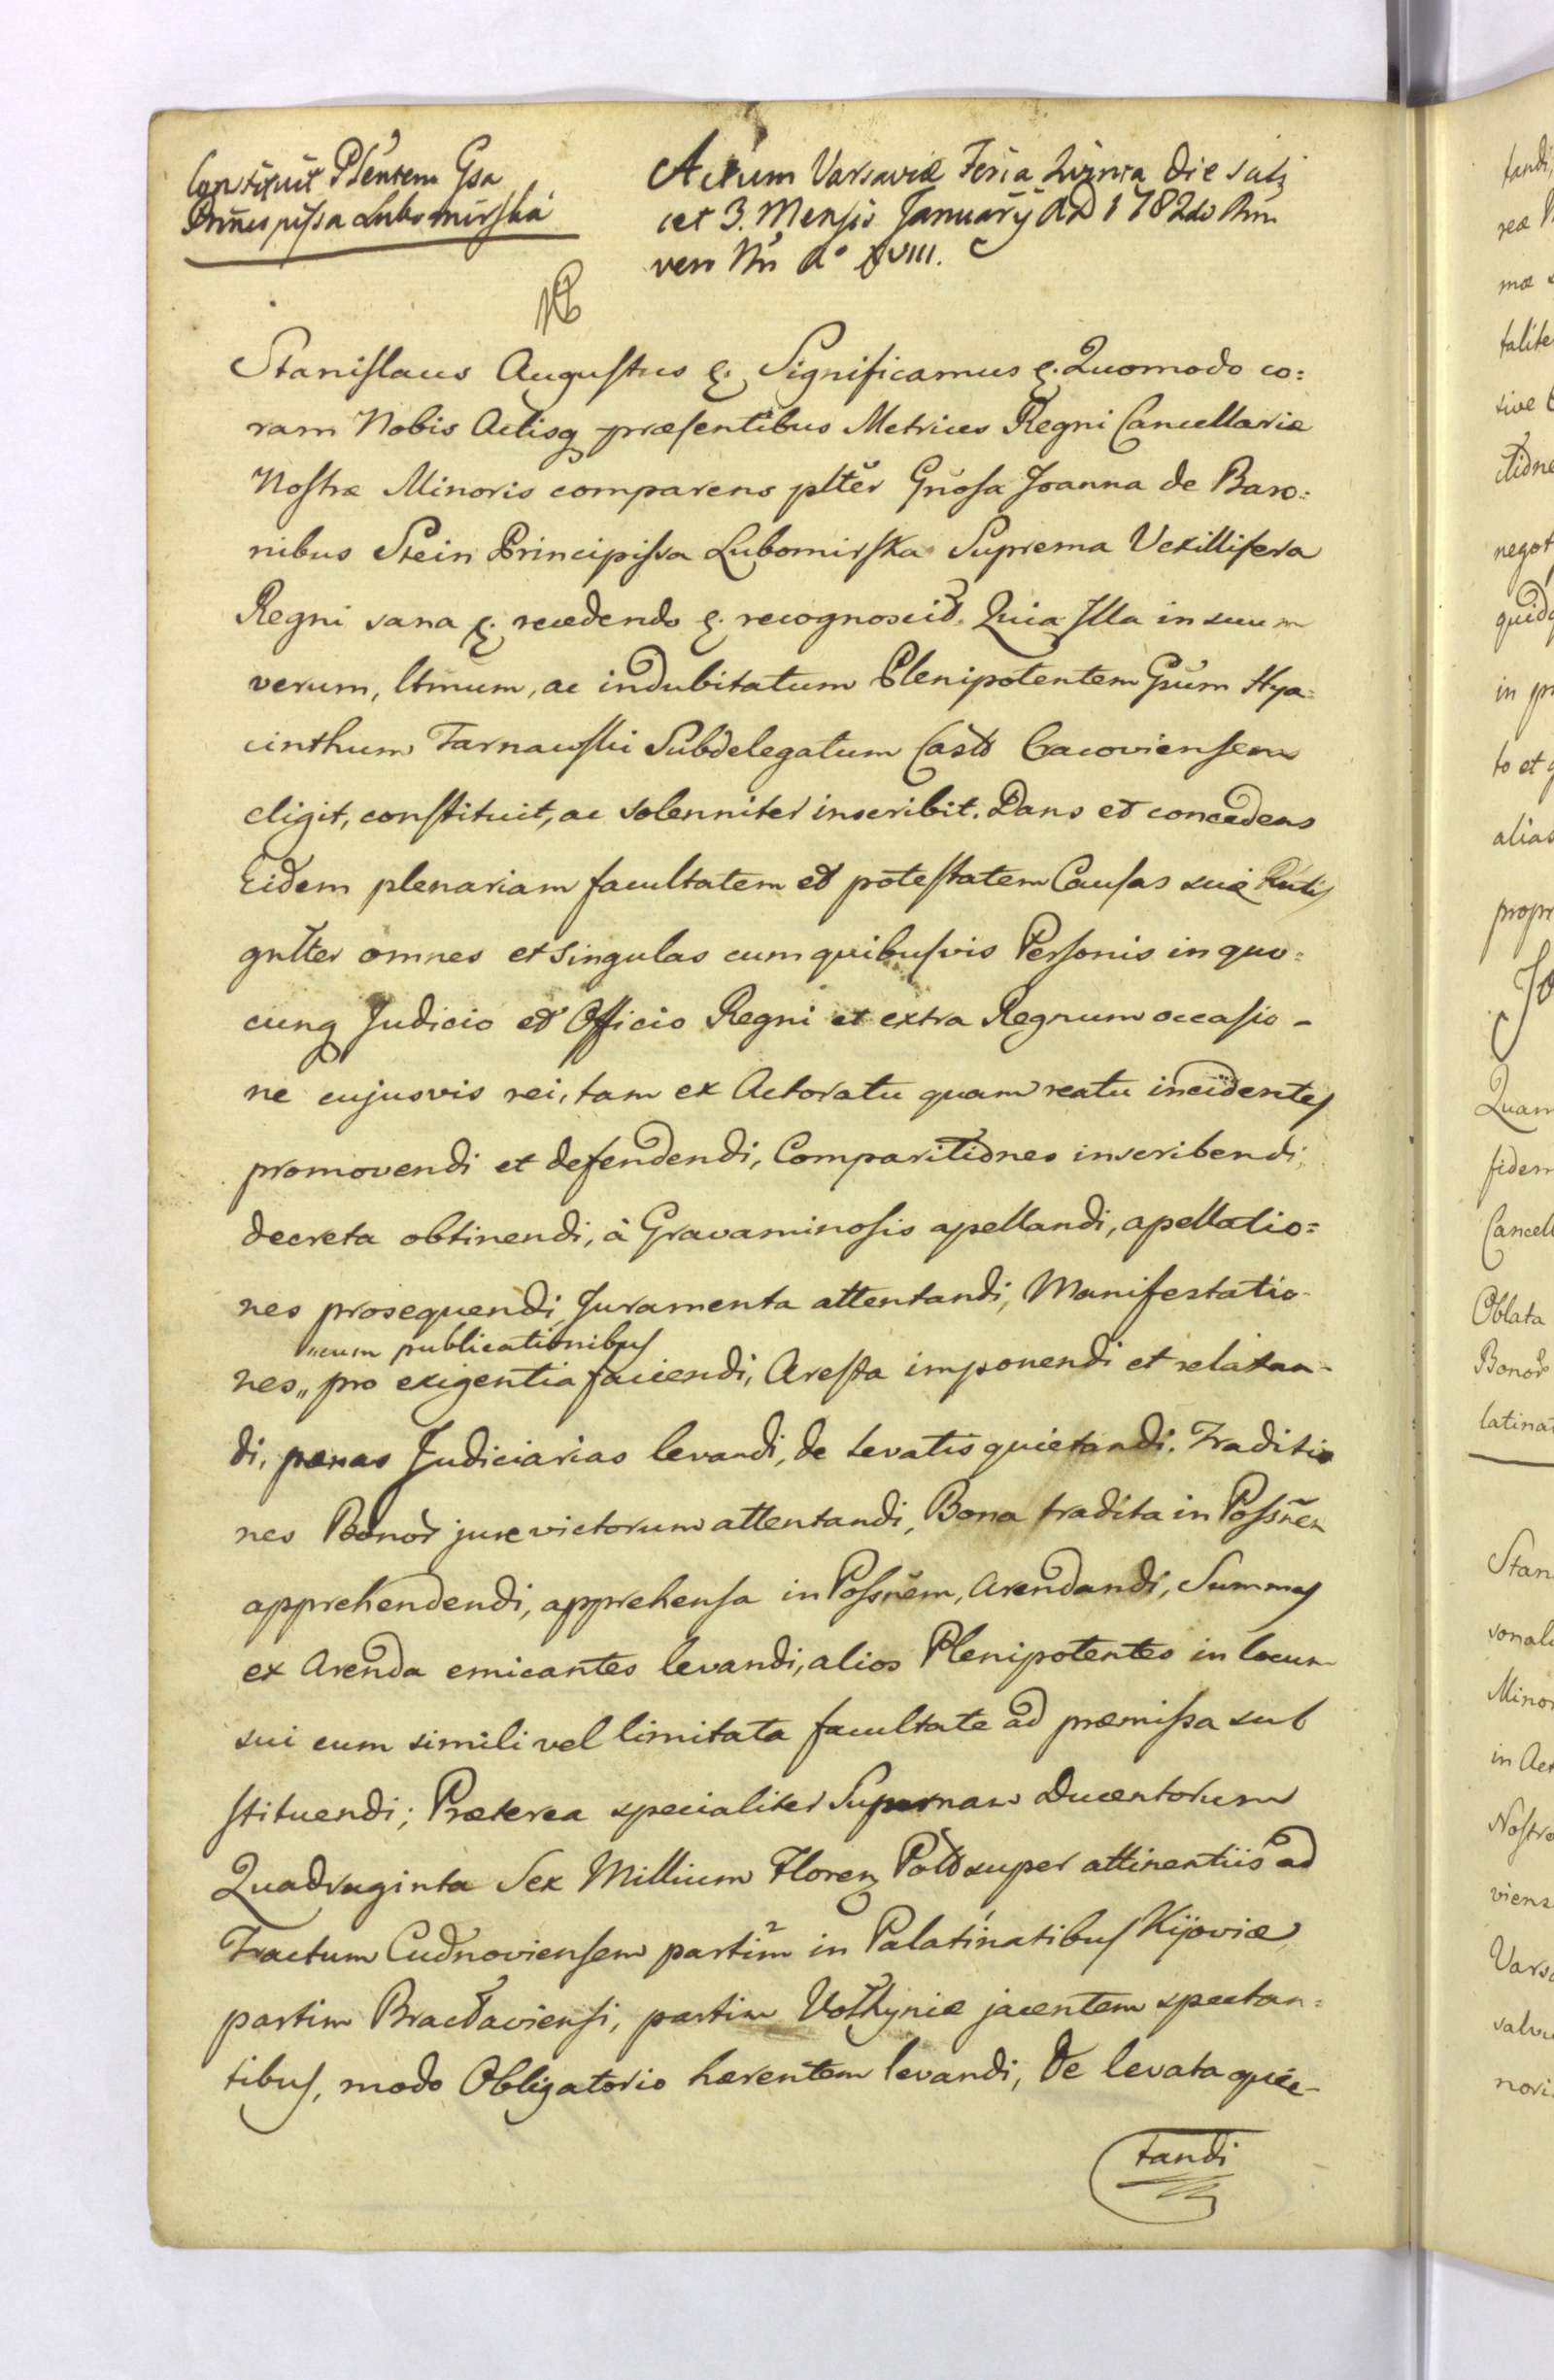 Constituit Plentem Gsa
Principissa Lubomirska
Actum Varsaviæ Feria Quinta die scilz
cet 3. Mensis January AD 1782do Rni
vero Nri Ao XVIII.
Stanislaus Augustus &. Significamus &. Quomodo co:
ram Nobis Actisq præsentibus Metrices Regni Cancellariæ
Nostræ Minoris comparens pltěr Gnosa Joanna de Baro:
nibus Stein Principissa Lubomirska Suprema Vexillifera
Regni sana &. recedendo &. recognoscit. Quia Illa in suum
verum, ltmum, ac indubitatum Plenipotentem Gsum Hya:
cinthum Tarnawski Subdelegatum Castr Cracoviensem
eligit, constituit, ac solenniter inscribit. Dans et concedens
Eidem plenariam facultatem et potestatem Causas suæ
gnlter omnes et singulas cum quibusvis Personis in quo:
cunq Judicio et Officio Regni et extra Regnum occasio-
ne cujusvis rei, tam ex Actoratu quam reatu incidentes
promovendi et defendendi, Comparitiones inscribendi,
decreta obtinendi, à Gravaminosis apellandi, apellatio:
nes prosequendi, Juramenta attentandi, Manifestatio-
„cum publicationibus
nes „ pro exigentia faciendi, Aresta imponendi et relaxan-
di, pænas Judiciarias levandi, de levatis quietandi. Traditio
nes Bonor jure victorum attentandi, Bona tradita in Possnem
apprehendendi, apprehensa in Possnem, Arendandi, Summas
ex Arenda emicantes levandi, alios Plenipotentes in locum
sui cum simili vel limitata facultate ad præmissa sub
stituendi; Præterea specialiter Summam Ducentorum
Quadraginta Sex Millium Floren Pold super attinentiis ad
Tractum Cudnoviensem partim in Palatinatibus Kijoviæ
partim Braclaviensi, partim Volhyniæ jacentem spectan:
tibus, modo Obligatorio hærentem levandi, de levata quie-
tandi